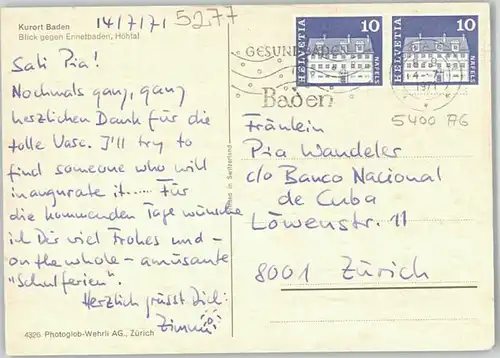 Kurort Baden
Blick gegen Ennetbaden, Höhtal
14/7/71
5277
Sali Pia!
Nochmals ganz, ganz
herzlichen Dank für die
tolle Vase. I'll try to
find someone who will
inaugurate it..... Für
die kommenden Tage wünsche
ich Dir viel Frohes und -
on the whole - amüsante
"Schulferien".
Herzlich grüsst Dich:
4326 Photoglob-Wehrli AG., Zürich
Printed in Switzerland
HELVETIA 10 NÄFELS
HELVETIA 10 NÄFELS
GESUND BADEN
Baden
1971
5400 A6
Fräulein
Pia Wandeler
c/o Banco Nacional
de Cuba
Löwenstr. 11
8001 Zürich